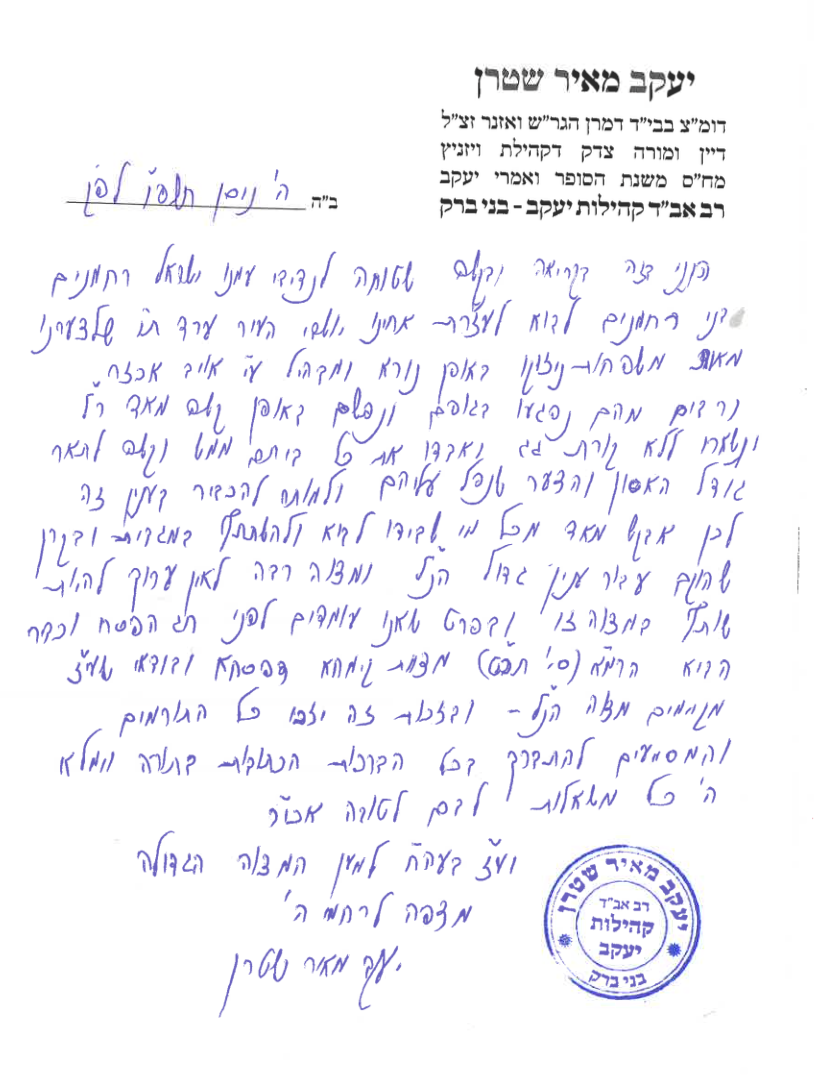 יעקב מאיר שטרן
דומ"צ בבי"ד דמרן הגר"ש ואזנר זצ"ל
דיין ומורה צדק דקהילת ויזניץ
מח"ס משנת הסופר ואמרי יעקב
רב אב"ד קהילות יעקב - בני ברק
ב"ה ה' ניסן תשפ"ו לפ"ק
הנני בזה בקריאה ובקשה שטוחה לנדיבי עמנו ישראל רחמנים
בני רחמנים לבוא לעזרת אחינו יושבי העיר ערד ת"ו שלצערנו
מאות משפחות ניזוקו באופן נורא ומבהיל ע"י אויב אכזר
ורבים מהם נפגעו בגופם ונפשם באופן קשה מאד ר"ל
ונשארו ללא קורת גג ואבדו את כל ביתם ממש וקשה לתאר
גודל האסון והצער שנפל עליהם ולמותר להכביר בענין זה
לכן אבקש מאד מכל מי שבידו לבוא ולהשתתף במגבית ובקרן
שהוקם עבור ענין גדול הנ"ל ומצוה רבה לאין ערוך להיות
שותף במצוה זו ובפרט שאנו עומדים לפני חג הפסח וכבר
הביא הרמ"א (סי' תכ"ט) מצות קימחא דפסחא ובודאי שעי"ז
מקיימים מצוה הנ"ל - ובזכות זה יזכו כל התורמים
והמסייעים להתברך בכל הברכות הכתובות בתורה וימלא
ה' כל משאלות לבם לטובה אכי"ר
ועז בעה"ח למען המצוה הגדולה
מצפה לרחמי ה'
יעקב מאיר שטרן
יעקב מאיר שטרן
רב אב"ד
קהילות
יעקב
בני ברק